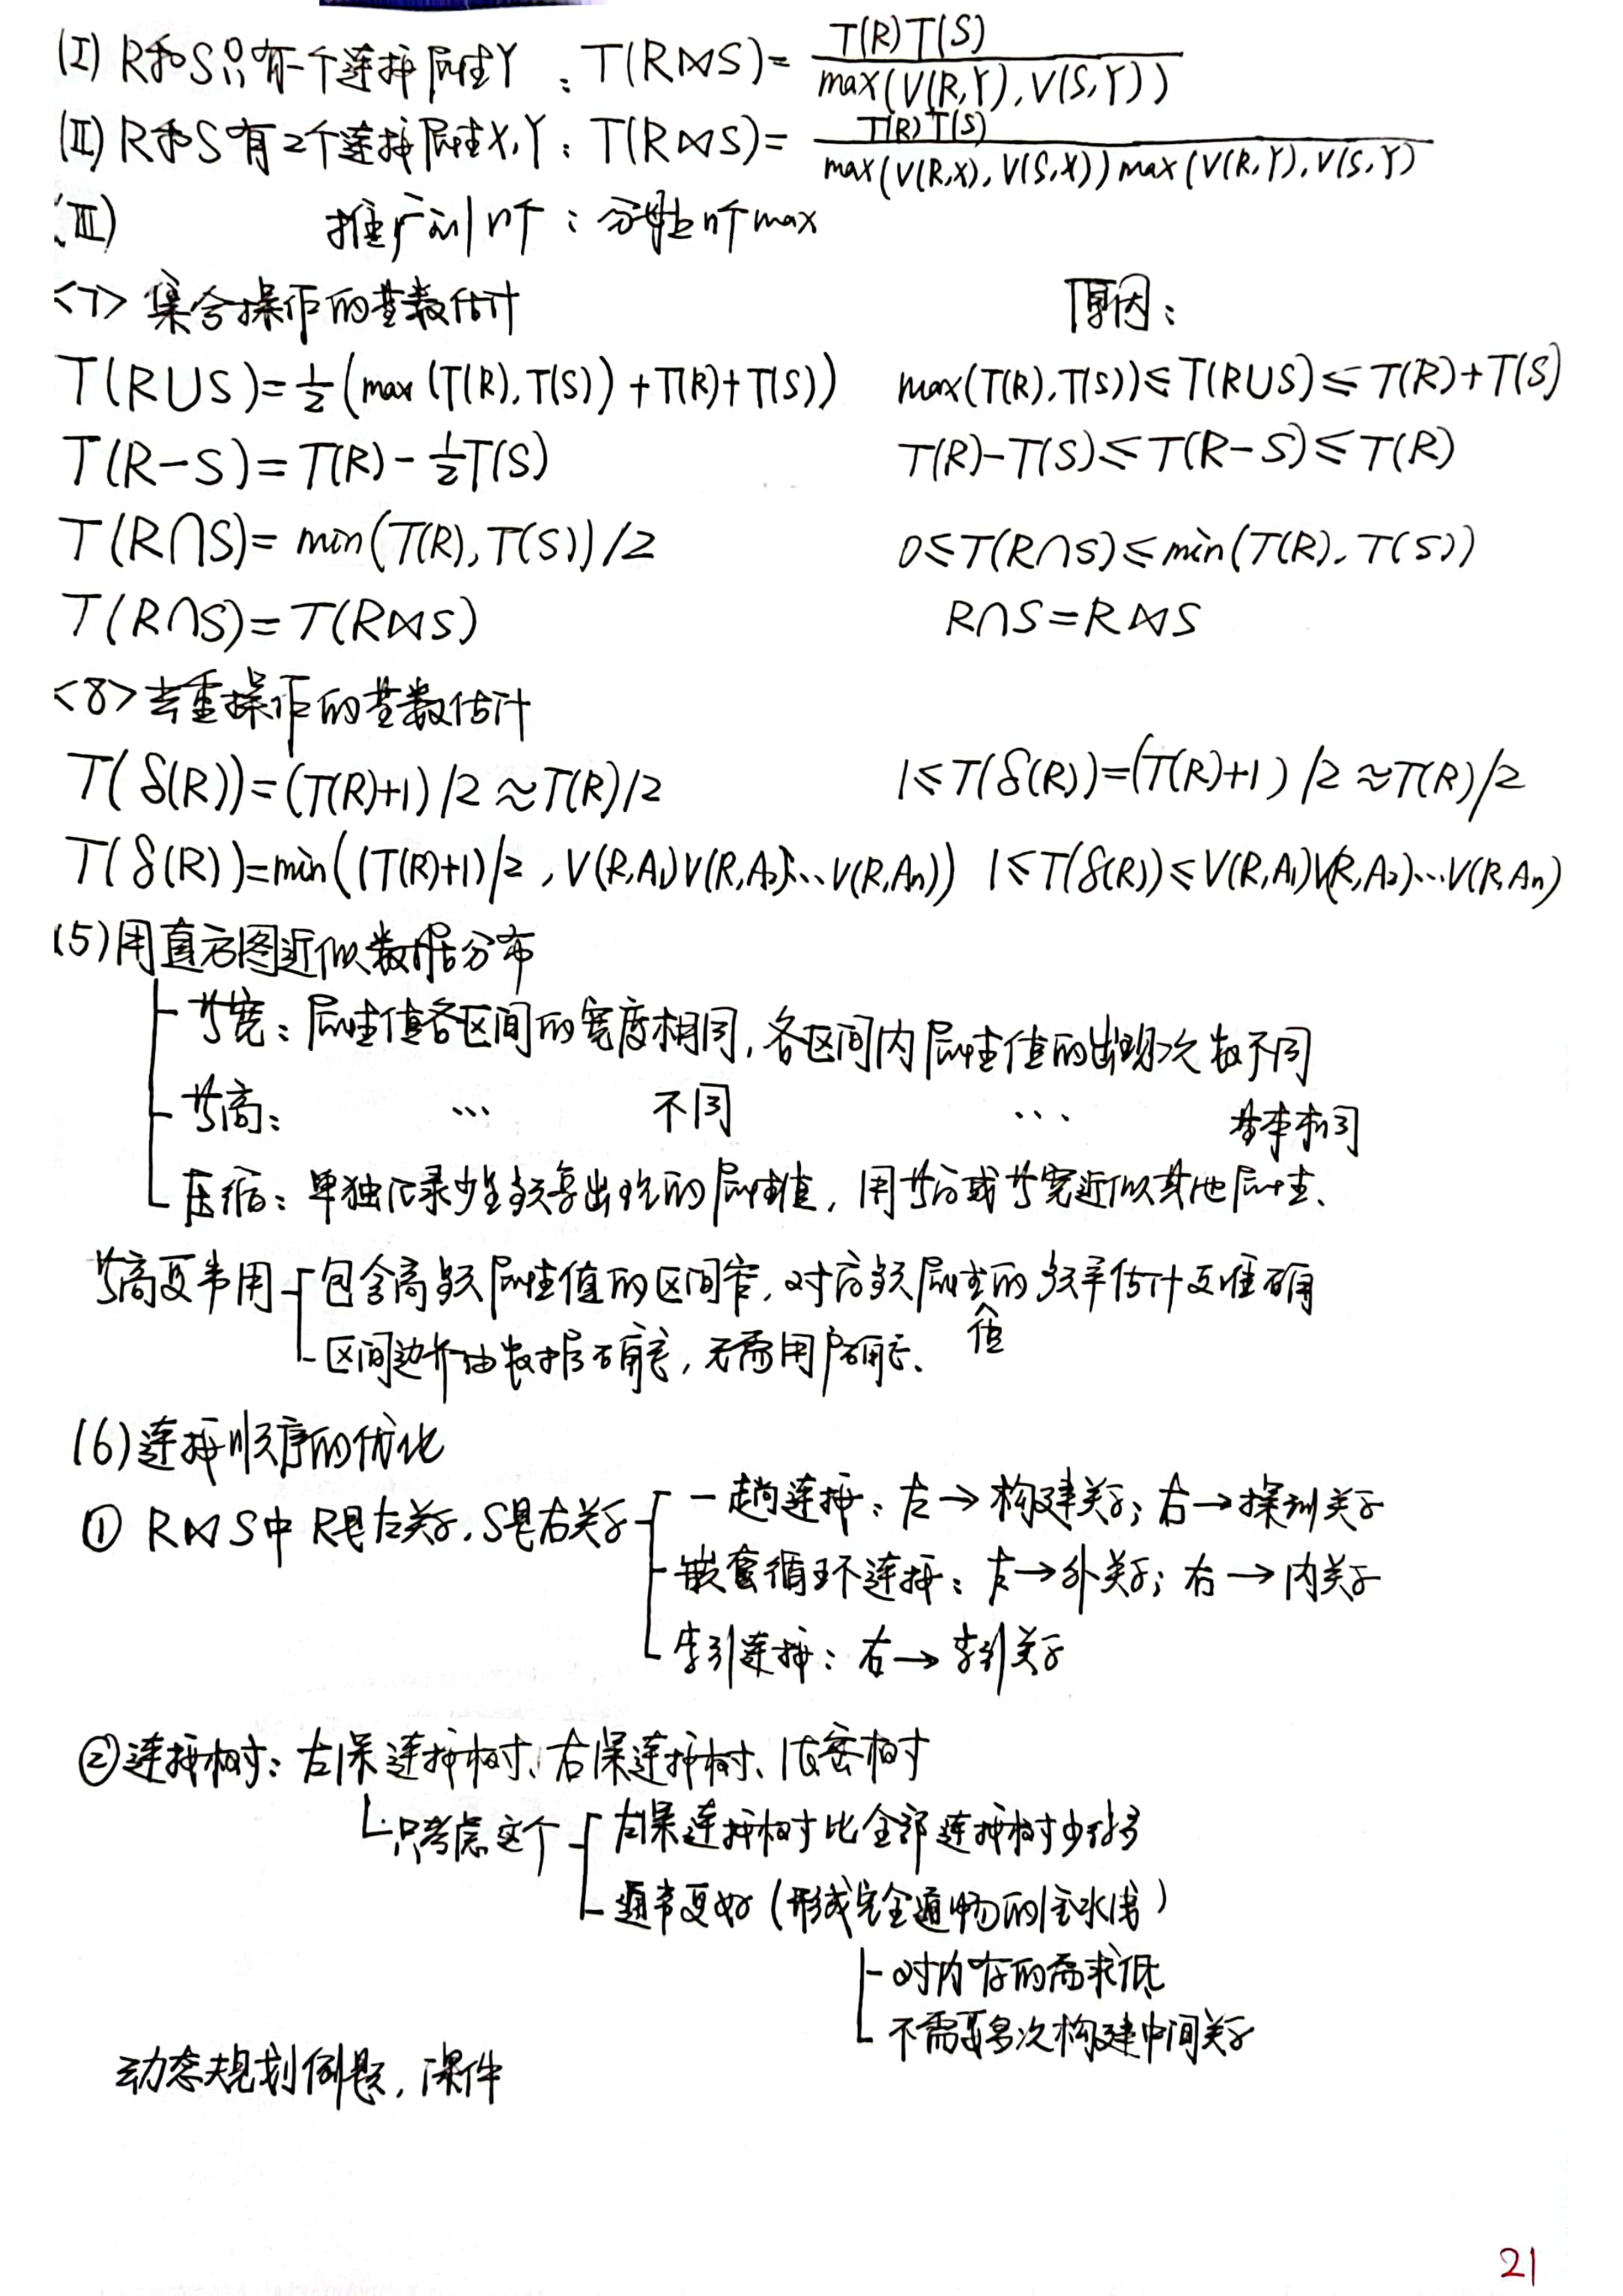 (Ⅰ) R和S只有一个连接属性Y：T(R⋈S)= T(R)T(S) / max(V(R,Y),V(S,Y))
(Ⅱ) R和S有2个连接属性X,Y：T(R⋈S)= T(R)T(S) / max(V(R,X),V(S,X))max(V(R,Y),V(S,Y)
(Ⅲ) 推广到n个：分母上n个max
<7> 集合操作的基数估计 原因：
T(R∪S)=½(max(T(R),T(S))+T(R)+T(S)) max(T(R),T(S))≤T(R∪S)≤T(R)+T(S)
T(R-S)=T(R)-½T(S) T(R)-T(S)≤T(R-S)≤T(R)
T(R∩S)=min(T(R),T(S))/2 0≤T(R∩S)≤min(T(R),T(S))
T(R∩S)=T(R⋈S) R∩S=R⋈S
<8>去重操作的基数估计
T(δ(R))=(T(R)+1)/2≈T(R)/2 1≤T(δ(R))=(T(R)+1)/2≈T(R)/2
T(δ(R))=min((T(R)+1)/2,V(R,A₁)V(R,A₂)…V(R,Aₙ)) 1≤T(δ(R))≤V(R,A₁)V(R,A₂)…V(R,Aₙ)
(5)用直方图近似数据分布
等宽：属性值各区间的宽度相同,各区间内属性值的出现次数不同
等高： … 不同 … 基本相同
压缩：单独记录少量频繁出现的属性值，用等高或等宽近似其他属性、
等高更常用 包含高频属性值的区间窄,对高频属性值的频率估计更准确
区间边界由数据确定,无需用户确定、
(6)连接顺序的优化
① R⋈S中R是左关系,S是右关系 一趟连接：左→构建关系；右→探测关系
嵌套循环连接：左→外关系；右→内关系
索引连接：右→索引关系
②连接树：左深连接树、右深连接树、浓密树
只考虑这个 左深连接树比全部连接树少得多
通常更好(形成完全通畅的流水线)
对内存的需求低
不需要多次构建中间关系
动态规划例题,课件
21